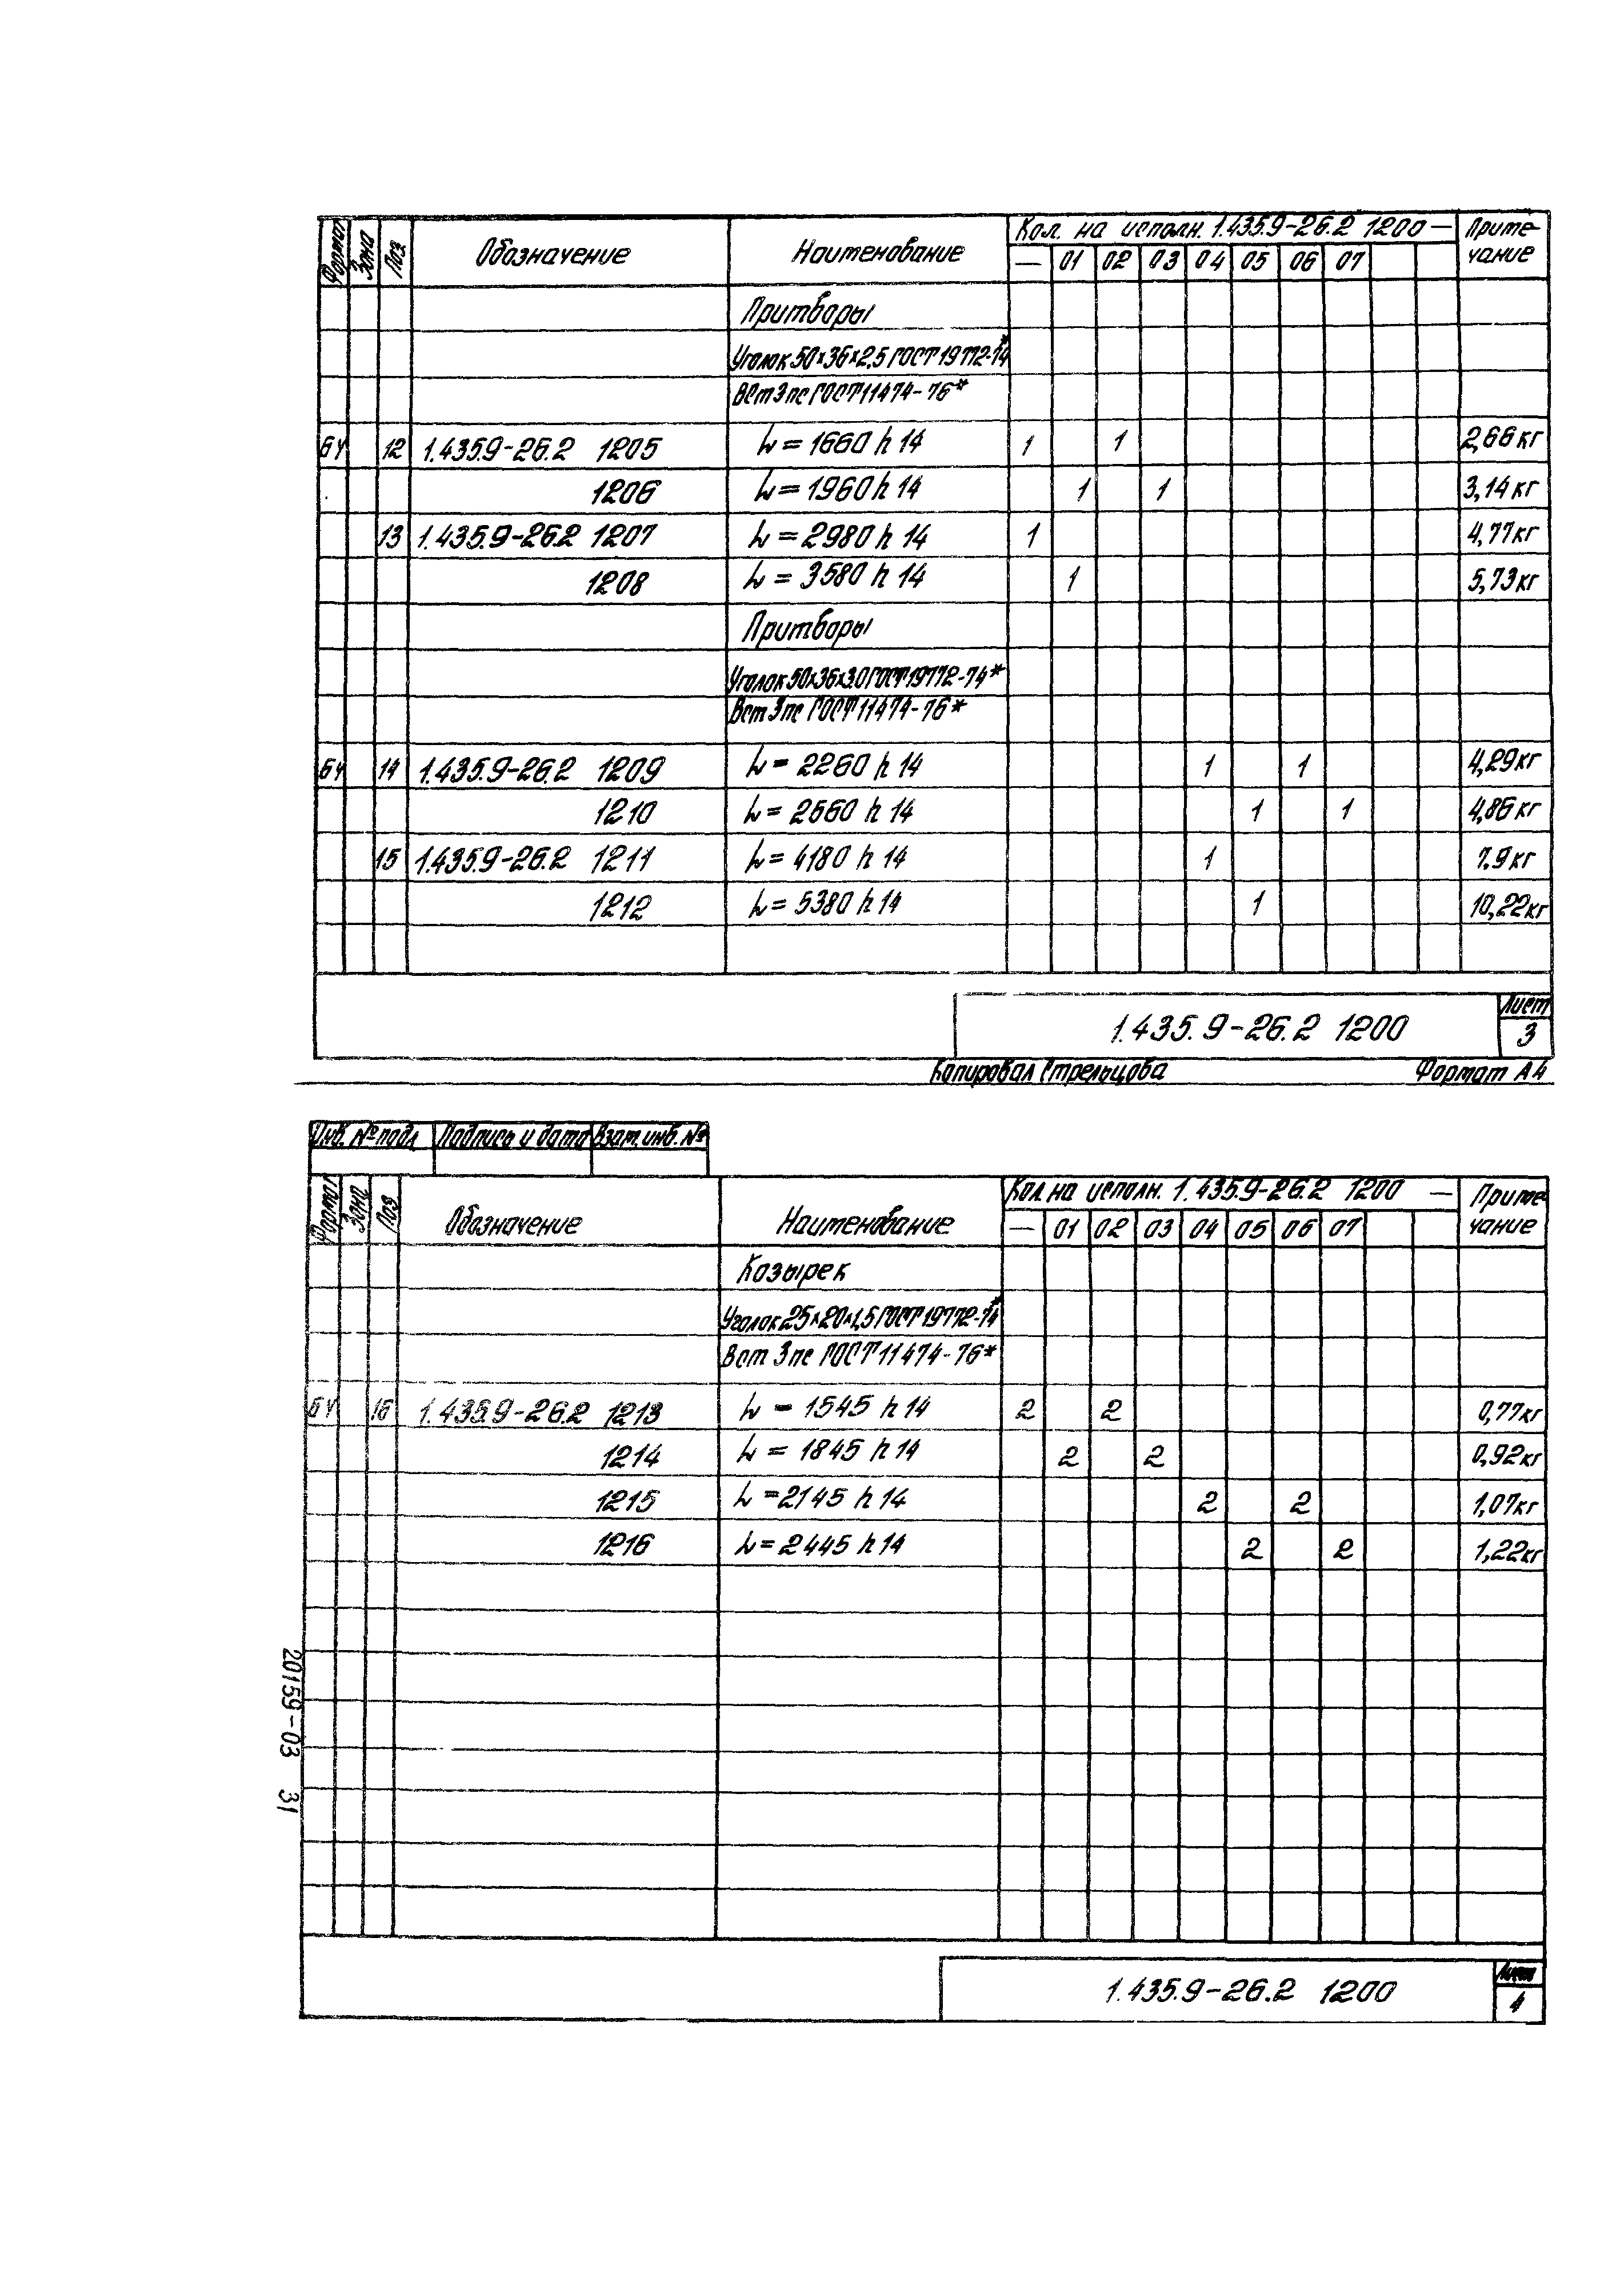 Формат Зона Поз. Обозначение Наименование Кол. на исполн. 1.435.9-26.2 1200 — Приме-
— 01 02 03 04 05 06 07 чание
Притворы
Уголок 50×36×2,5 ГОСТ 19772-74*
ВСт 3 пс ГОСТ 11474-76*
БЧ 12 1.435.9-26.2 1205 L = 1660 h 14 1 1 2,66 кг
1206 L = 1960 h 14 1 1 3,14 кг
13 1.435.9-26.2 1207 L = 2980 h 14 1 4,77 кг
1208 L = 3580 h 14 1 5,73 кг
Притворы
Уголок 50×36×3.0 ГОСТ 19772-74*
Вст 3 пс ГОСТ 11474-76*
БЧ 14 1.435.9-26.2 1209 L = 2260 h 14 1 1 4,29 кг
1210 L = 2560 h 14 1 1 4,86 кг
15 1.435.9-26.2 1211 L = 4180 h 14 1 7,9 кг
1212 L = 5380 h 14 1 10,22 кг
1.435.9-26.2 1200 Лист
3
Копировал Стрельцова Формат А4
Инв. № подл Подпись и дата Взам. инв. №
Формат Зона Поз Обозначение Наименование Кол. на исполн. 1.435.9-26.2 1200 — Приме-
— 01 02 03 04 05 06 07 чание
Козырек
Уголок 25×20×1,5 ГОСТ 19772-74*
Вст 3 пс ГОСТ 11474-76*
БЧ 16 1.435.9-26.2 1213 L = 1545 h 14 2 2 0,77 кг
1214 L = 1845 h 14 2 2 0,92 кг
1215 L = 2145 h 14 2 2 1,07 кг
1216 L = 2445 h 14 2 2 1,22 кг
20159-03 31
1.435.9-26.2 1200 Лист
4